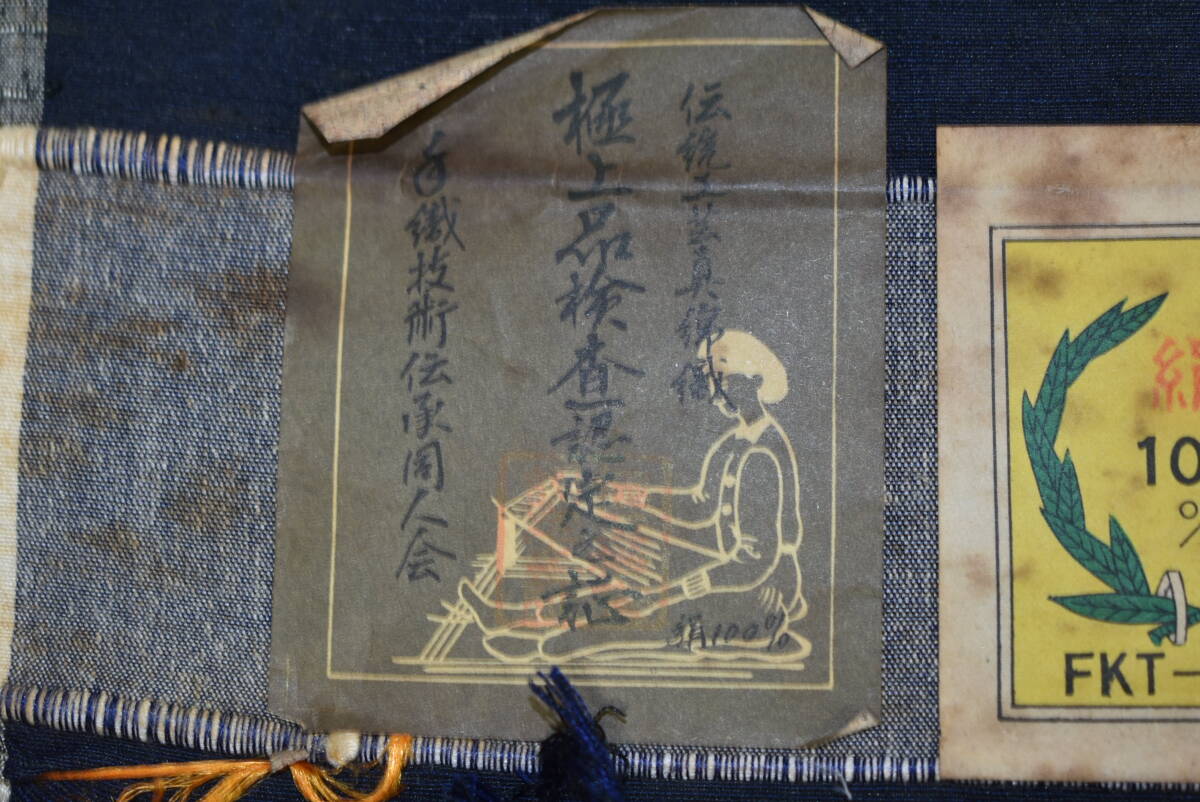 伝統工芸真綿織
極上品検査認定之証
手織技術伝承同人会
絹100%
絹
10
%
FKT-